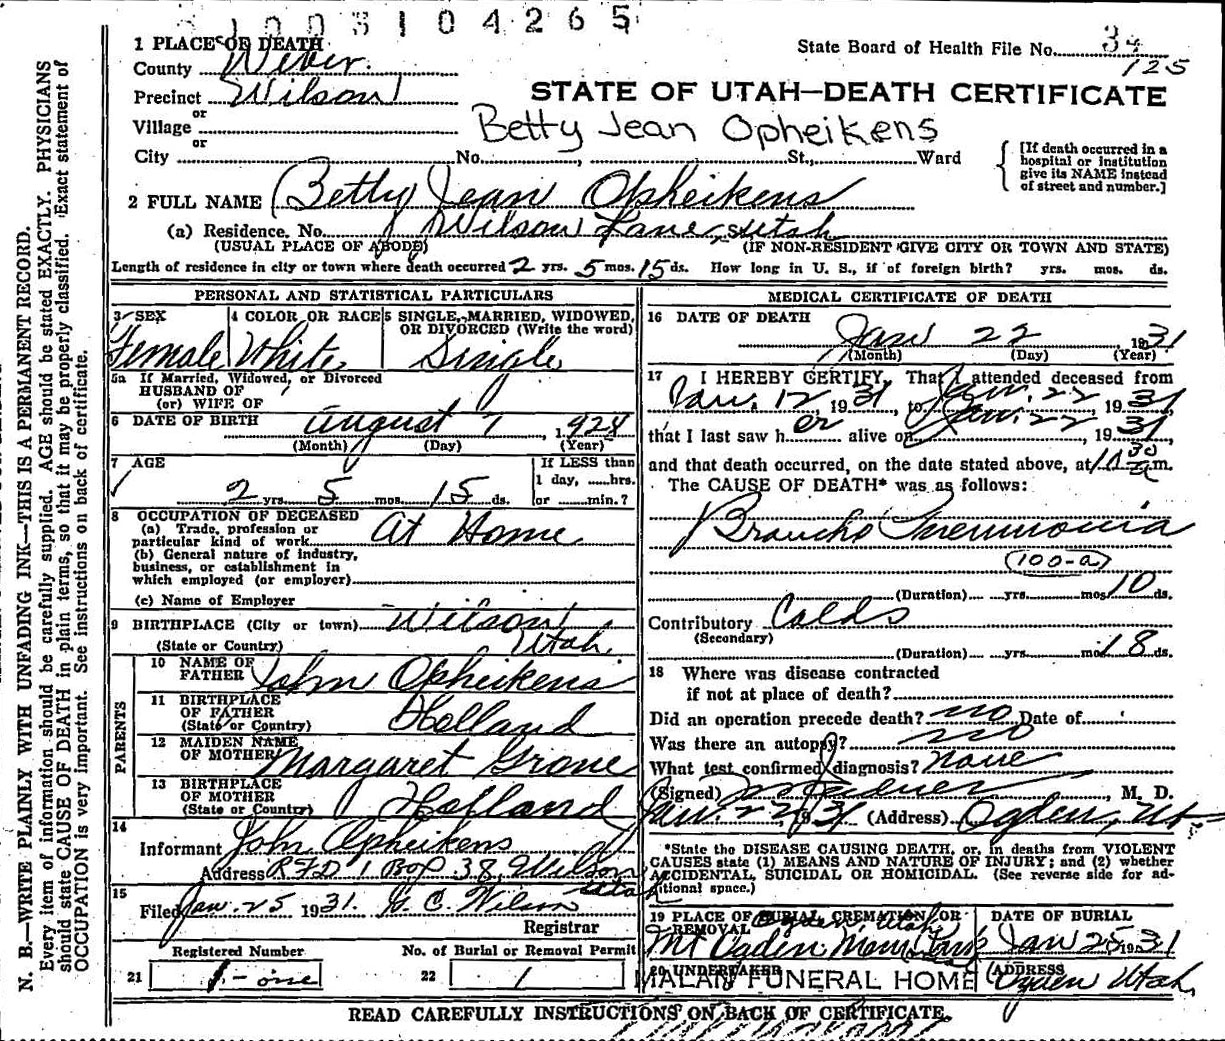 1003104265
1 PLACE OF DEATH
County Weber.
State Board of Health File No. 34
125
Precinct Wilson
STATE OF UTAH—DEATH CERTIFICATE
or
Village
Betty Jean Opheikens
or
City No. , St., Ward
[If death occurred in a
hospital or institution
give its NAME instead
of street and number.]
2 FULL NAME Betty Jean Opheikens
(a) Residence. No. Wilson Lane, Utah St.
(USUAL PLACE OF ABODE) (IF NON-RESIDENT GIVE CITY OR TOWN AND STATE)
Length of residence in city or town where death occurred 2 yrs. 5 mos. 15 ds. How long in U. S., if of foreign birth? yrs. mos. ds.
PERSONAL AND STATISTICAL PARTICULARS
3 SEX 4 COLOR OR RACE 5 SINGLE, MARRIED, WIDOWED,
OR DIVORCED (Write the word)
Female White Single
5a If Married, Widowed, or Divorced
HUSBAND OF
(or) WIFE OF
6 DATE OF BIRTH August 7, 1928
(Month) (Day) (Year)
7 AGE If LESS than
1 day, hrs.
2 yrs. 5 mos. 15 ds. or min.?
8 OCCUPATION OF DECEASED
(a) Trade, profession or
particular kind of work At Home
(b) General nature of industry,
business, or establishment in
which employed (or employer)
(c) Name of Employer
9 BIRTHPLACE (City or town) Wilson
(State or Country) Utah
PARENTS
10 NAME OF
FATHER John Opheikens
11 BIRTHPLACE
OF FATHER
(State or Country) Holland
12 MAIDEN NAME
OF MOTHER Margaret Grone
13 BIRTHPLACE
OF MOTHER
(State or Country) Holland
14
Informant John Opheikens
Address RFD 1 Box 38, Wilson
Utah
15
Filed Jan. 25 1931. C. Wilson
Registrar
Registered Number No. of Burial or Removal Permit
21 1 - one 22 1
MEDICAL CERTIFICATE OF DEATH
16 DATE OF DEATH
Jan 22 1931
(Month) (Day) (Year)
17 I HEREBY CERTIFY, That I attended deceased from
Jan. 12, 1931, to Jan. 22 1931
that I last saw her alive on Jan. 22, 1931,
and that death occurred, on the date stated above, at m.
The CAUSE OF DEATH* was as follows:
Broncho Pneumonia
(100-a)
(Duration) yrs. mos. 10 ds.
Contributory Colds
(Secondary)
(Duration) yrs. mos. 18 ds.
18 Where was disease contracted
if not at place of death?
Did an operation precede death? no Date of
Was there an autopsy? no
What test confirmed diagnosis? none
(Signed) , M. D.
Jan. 22 1931 (Address) Ogden, Ut.
*State the DISEASE CAUSING DEATH, or, in deaths from VIOLENT
CAUSES state (1) MEANS AND NATURE OF INJURY; and (2) whether
ACCIDENTAL, SUICIDAL OR HOMICIDAL. (See reverse side for ad-
ditional space.)
19 PLACE OF BURIAL, CREMATION, OR
REMOVAL Ogden, Utah
DATE OF BURIAL
Mt Ogden Mem Park Jan 25 1931
20 UNDERTAKER ADDRESS
MALAN FUNERAL HOME Ogden Utah
READ CAREFULLY INSTRUCTIONS ON BACK OF CERTIFICATE.
N. B.—WRITE PLAINLY WITH UNFADING INK—THIS IS A PERMANENT RECORD.
Every item of information should be carefully supplied. AGE should be stated EXACTLY. PHYSICIANS
should state CAUSE OF DEATH in plain terms, so that it may be properly classified. Exact statement of
OCCUPATION is very important. See instructions on back of certificate.